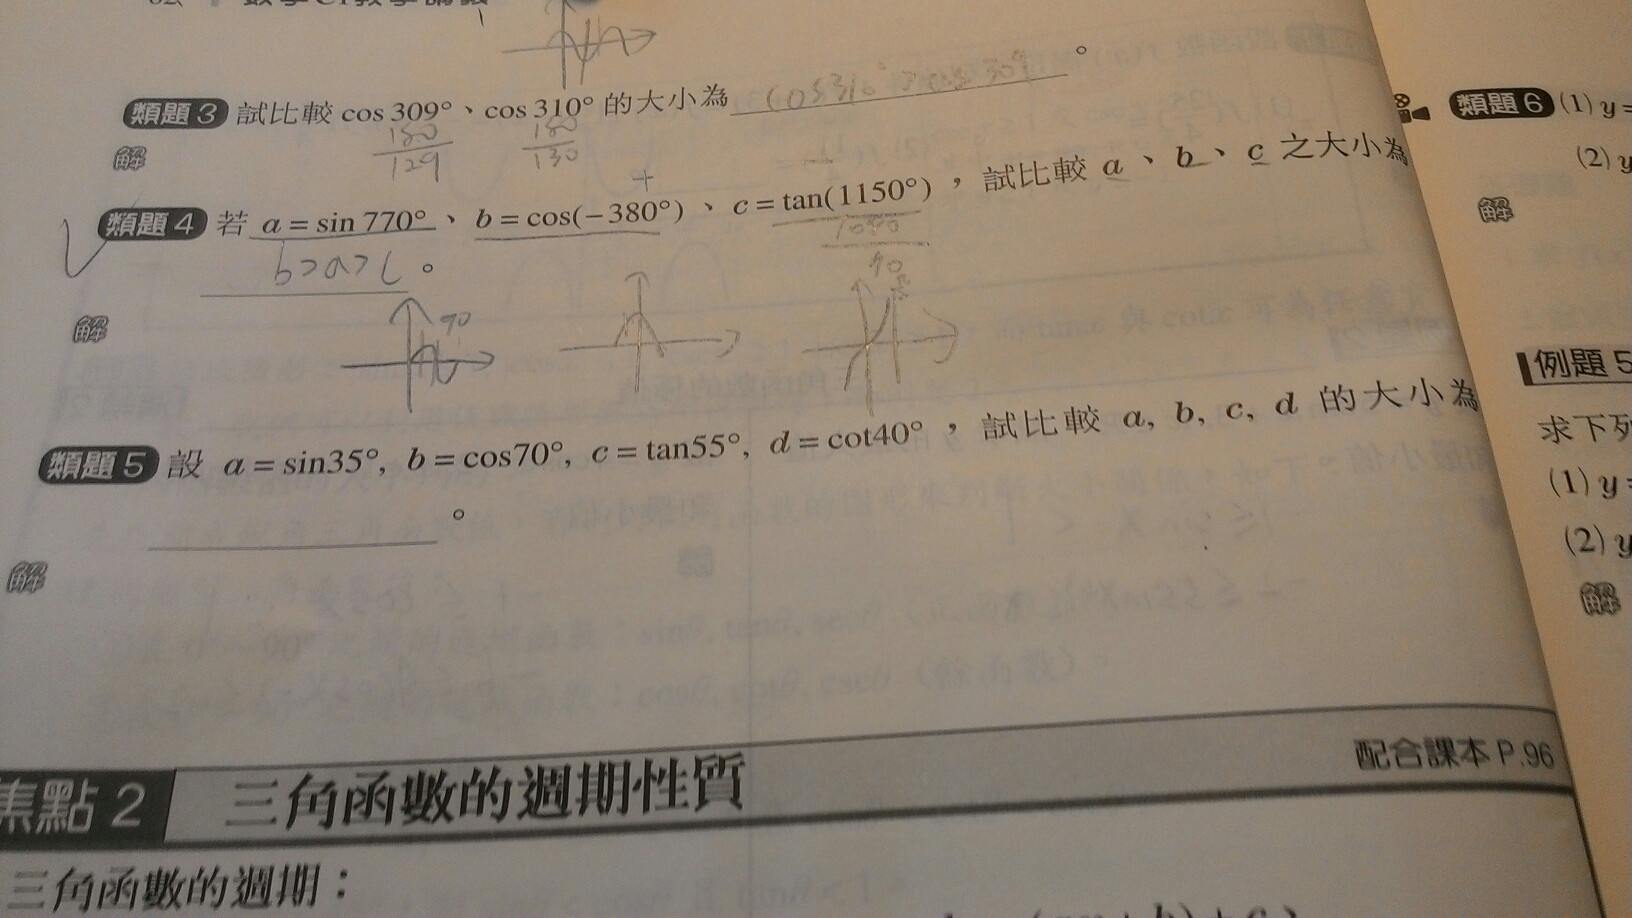 類題3 試比較 cos 309°、cos 310° 的大小為 cos310°>cos309° 。
180 180
129 130
解
+
類題4 若 a = sin 770°、b = cos(−380°)、c = tan(1150°),試比較 a、b、c 之大小為
1080
b>a>c 。
90
解
90
類題5 設 a = sin35°, b = cos70°, c = tan55°, d = cot40°,試比較 a, b, c, d 的大小為
。
解
焦點2 三角函數的週期性質 配合課本 P.96
三角函數的週期:
類題6 (1) y =
(2) y
解
例題5
求下列
(1) y =
(2) y
解